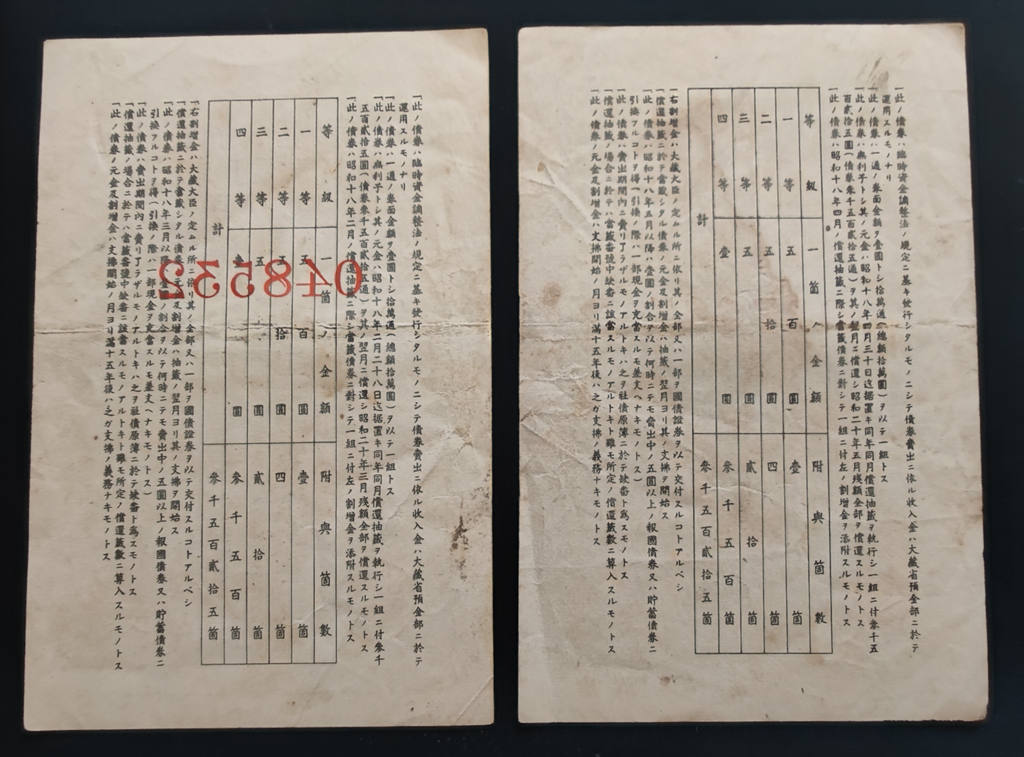 一此ノ債券ハ臨時資金調整法ノ規定ニ基キ發行シタルモノニシテ債券賣出ニ依ル收入金ハ大藏省預金部ニ於テ
運用スルモノナリ
一此ノ債券ハ一通ノ券面金額ヲ壹圓トシ拾萬通(總額拾萬圓)ヲ以テ一組トス
一此ノ債券ハ無利子トシ其ノ元金ハ昭和十八年二月二十八日迄据置キ同年同月償還抽籤ヲ執行シ一組ニ付參千
五百貳拾五圓(債券參千五百貳拾五通)ヲ其ノ翌月ニ償還シ昭和二十年三月殘額全部ヲ償還スルモノトス
一此ノ債券ハ昭和十八年二月ノ償還抽籤ニ際シ當籤債券ニ對シテ一組ニ付左ノ割增金ヲ添附スルモノトス
等級 一箇ノ金額 附與箇數
一等 五百圓 壹箇
二等 五拾圓 四箇
三等 五圓 貳拾箇
四等 圓 參千五百箇
計 參千五百貳拾五箇
一右割增金ハ大藏大臣ノ定ムル所ニ依リ其ノ全部又ハ一部ヲ國債證券ヲ以テ交付スルコトアルベシ
一償還抽籤ニ於テ當籤シタル債券ノ元金及割增金ハ抽籤ノ翌月ヨリ其ノ支拂ヲ開始ス
一此ノ債券ハ昭和十八年三月以降ハ壹圓ノ割合ヲ以テ何時ニテモ賣出中ノ五圓以上ノ報國債券又ハ貯蓄債券ニ
引換フルコトヲ得(引換ノ際ハ一部現金ヲ充當スルモ差支ヘナキモノトス)
一此ノ債券ハ賣出期間內ニ賣リ了ラザルモノアルトキハ之ヲ社債原簿ニ於テ缺番ト爲スモノトス
一償還抽籤ノ場合ニ於テハ當籤番號中缺番ニ該當スルモノアルトキト雖モ所定ノ償還籤數ニ算入スルモノトス
一此ノ債券ノ元金及割增金ハ支拂開始ノ月ヨリ滿十五年後ハ之ガ支拂ノ義務ナキモノトス
一此ノ債券ハ臨時資金調整法ノ規定ニ基キ發行シタルモノニシテ債券賣出ニ依ル收入金ハ大藏省預金部ニ於テ
運用スルモノナリ
一此ノ債券ハ一通ノ券面金額ヲ壹圓トシ拾萬通(總額拾萬圓)ヲ以テ一組トス
一此ノ債券ハ無利子トシ其ノ元金ハ昭和十八年四月三十日迄据置キ同年同月償還抽籤ヲ執行シ一組ニ付參千五
百貳拾五圓(債券參千五百貳拾五通)ヲ其ノ翌月ニ償還シ昭和二十年五月殘額全部ヲ償還スルモノトス
一此ノ債券ハ昭和十八年四月ノ償還抽籤ニ際シ當籤債券ニ對シテ一組ニ付左ノ割增金ヲ添附スルモノトス
等級 一箇ノ金額 附與箇數
一等 五百圓 壹箇
二等 五拾圓 四箇
三等 五圓 貳拾箇
四等 壹圓 參千五百箇
計 參千五百貳拾五箇
一右割增金ハ大藏大臣ノ定ムル所ニ依リ其ノ全部又ハ一部ヲ國債證券ヲ以テ交付スルコトアルベシ
一償還抽籤ニ於テ當籤シタル債券ノ元金及割增金ハ抽籤ノ翌月ヨリ其ノ支拂ヲ開始ス
一此ノ債券ハ昭和十八年五月以降ハ壹圓ノ割合ヲ以テ何時ニテモ賣出中ノ五圓以上ノ報國債券又ハ貯蓄債券ニ
引換フルコトヲ得(引換ノ際ハ一部現金ヲ充當スルモ差支ヘナキモノトス)
一此ノ債券ハ賣出期間內ニ賣リ了ラザルモノアルトキハ之ヲ社債原簿ニ於テ缺番ト爲スモノトス
一償還抽籤ノ場合ニ於テハ當籤番號中缺番ニ該當スルモノアルトキト雖モ所定ノ償還籤數ニ算入スルモノトス
一此ノ債券ノ元金及割增金ハ支拂開始ノ月ヨリ滿十五年後ハ之ガ支拂ノ義務ナキモノトス